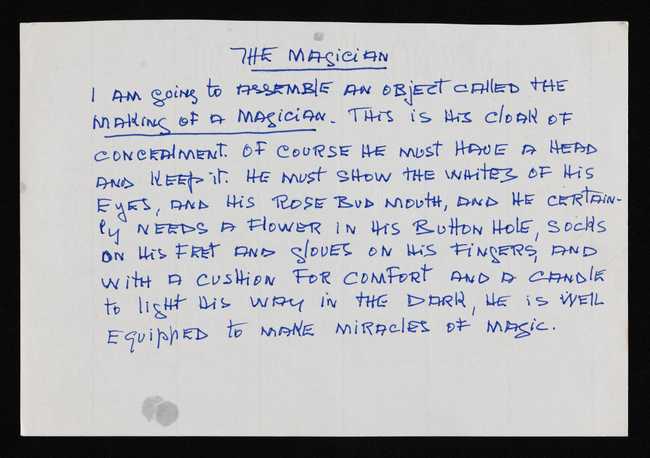 THE MAGICIAN
I AM going to ASSEMBLE AN OBJECT CALLED THE
MAKING OF A MAGICIAN. THIS IS HIS CLOAK OF
CONCEALMENT. OF COURSE HE MUST HAVE A HEAD
AND KEEP it. HE MUST SHOW THE WHITES OF HIS
EYES, AND HIS ROSE BUD MOUTH, AND HE CERTAIN-
ly NEEDS A FLOWER IN HIS BUTTON HOLE, SOCKS
ON HIS FEET AND GLOVES ON HIS FINGERS, AND
WITH A CUSHION FOR COMFORT AND A CANDLE
to light HIS WAY IN THE DARK, HE IS WELL
EQUIPPED to MAKE MIRACLES OF MAGIC.